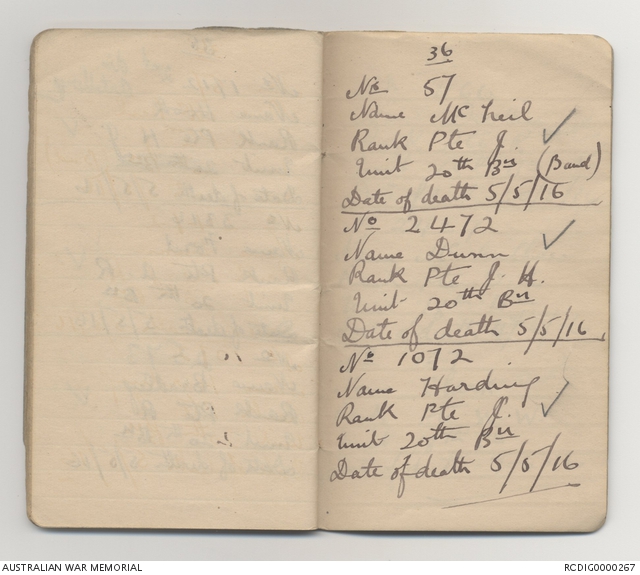 36
No 57
Name McNeil
Rank Pte J. ✓
Unit 20th Bn (Band)
Date of death 5/5/16
No 2472
Name Dunn ✓
Rank Pte J. H.
Unit 20th Bn
Date of death 5/5/16
No 1072
Name Harding
Rank Pte J. ✓
Unit 20th Bn
Date of death 5/5/16
AUSTRALIAN WAR MEMORIAL
RCDIG0000267